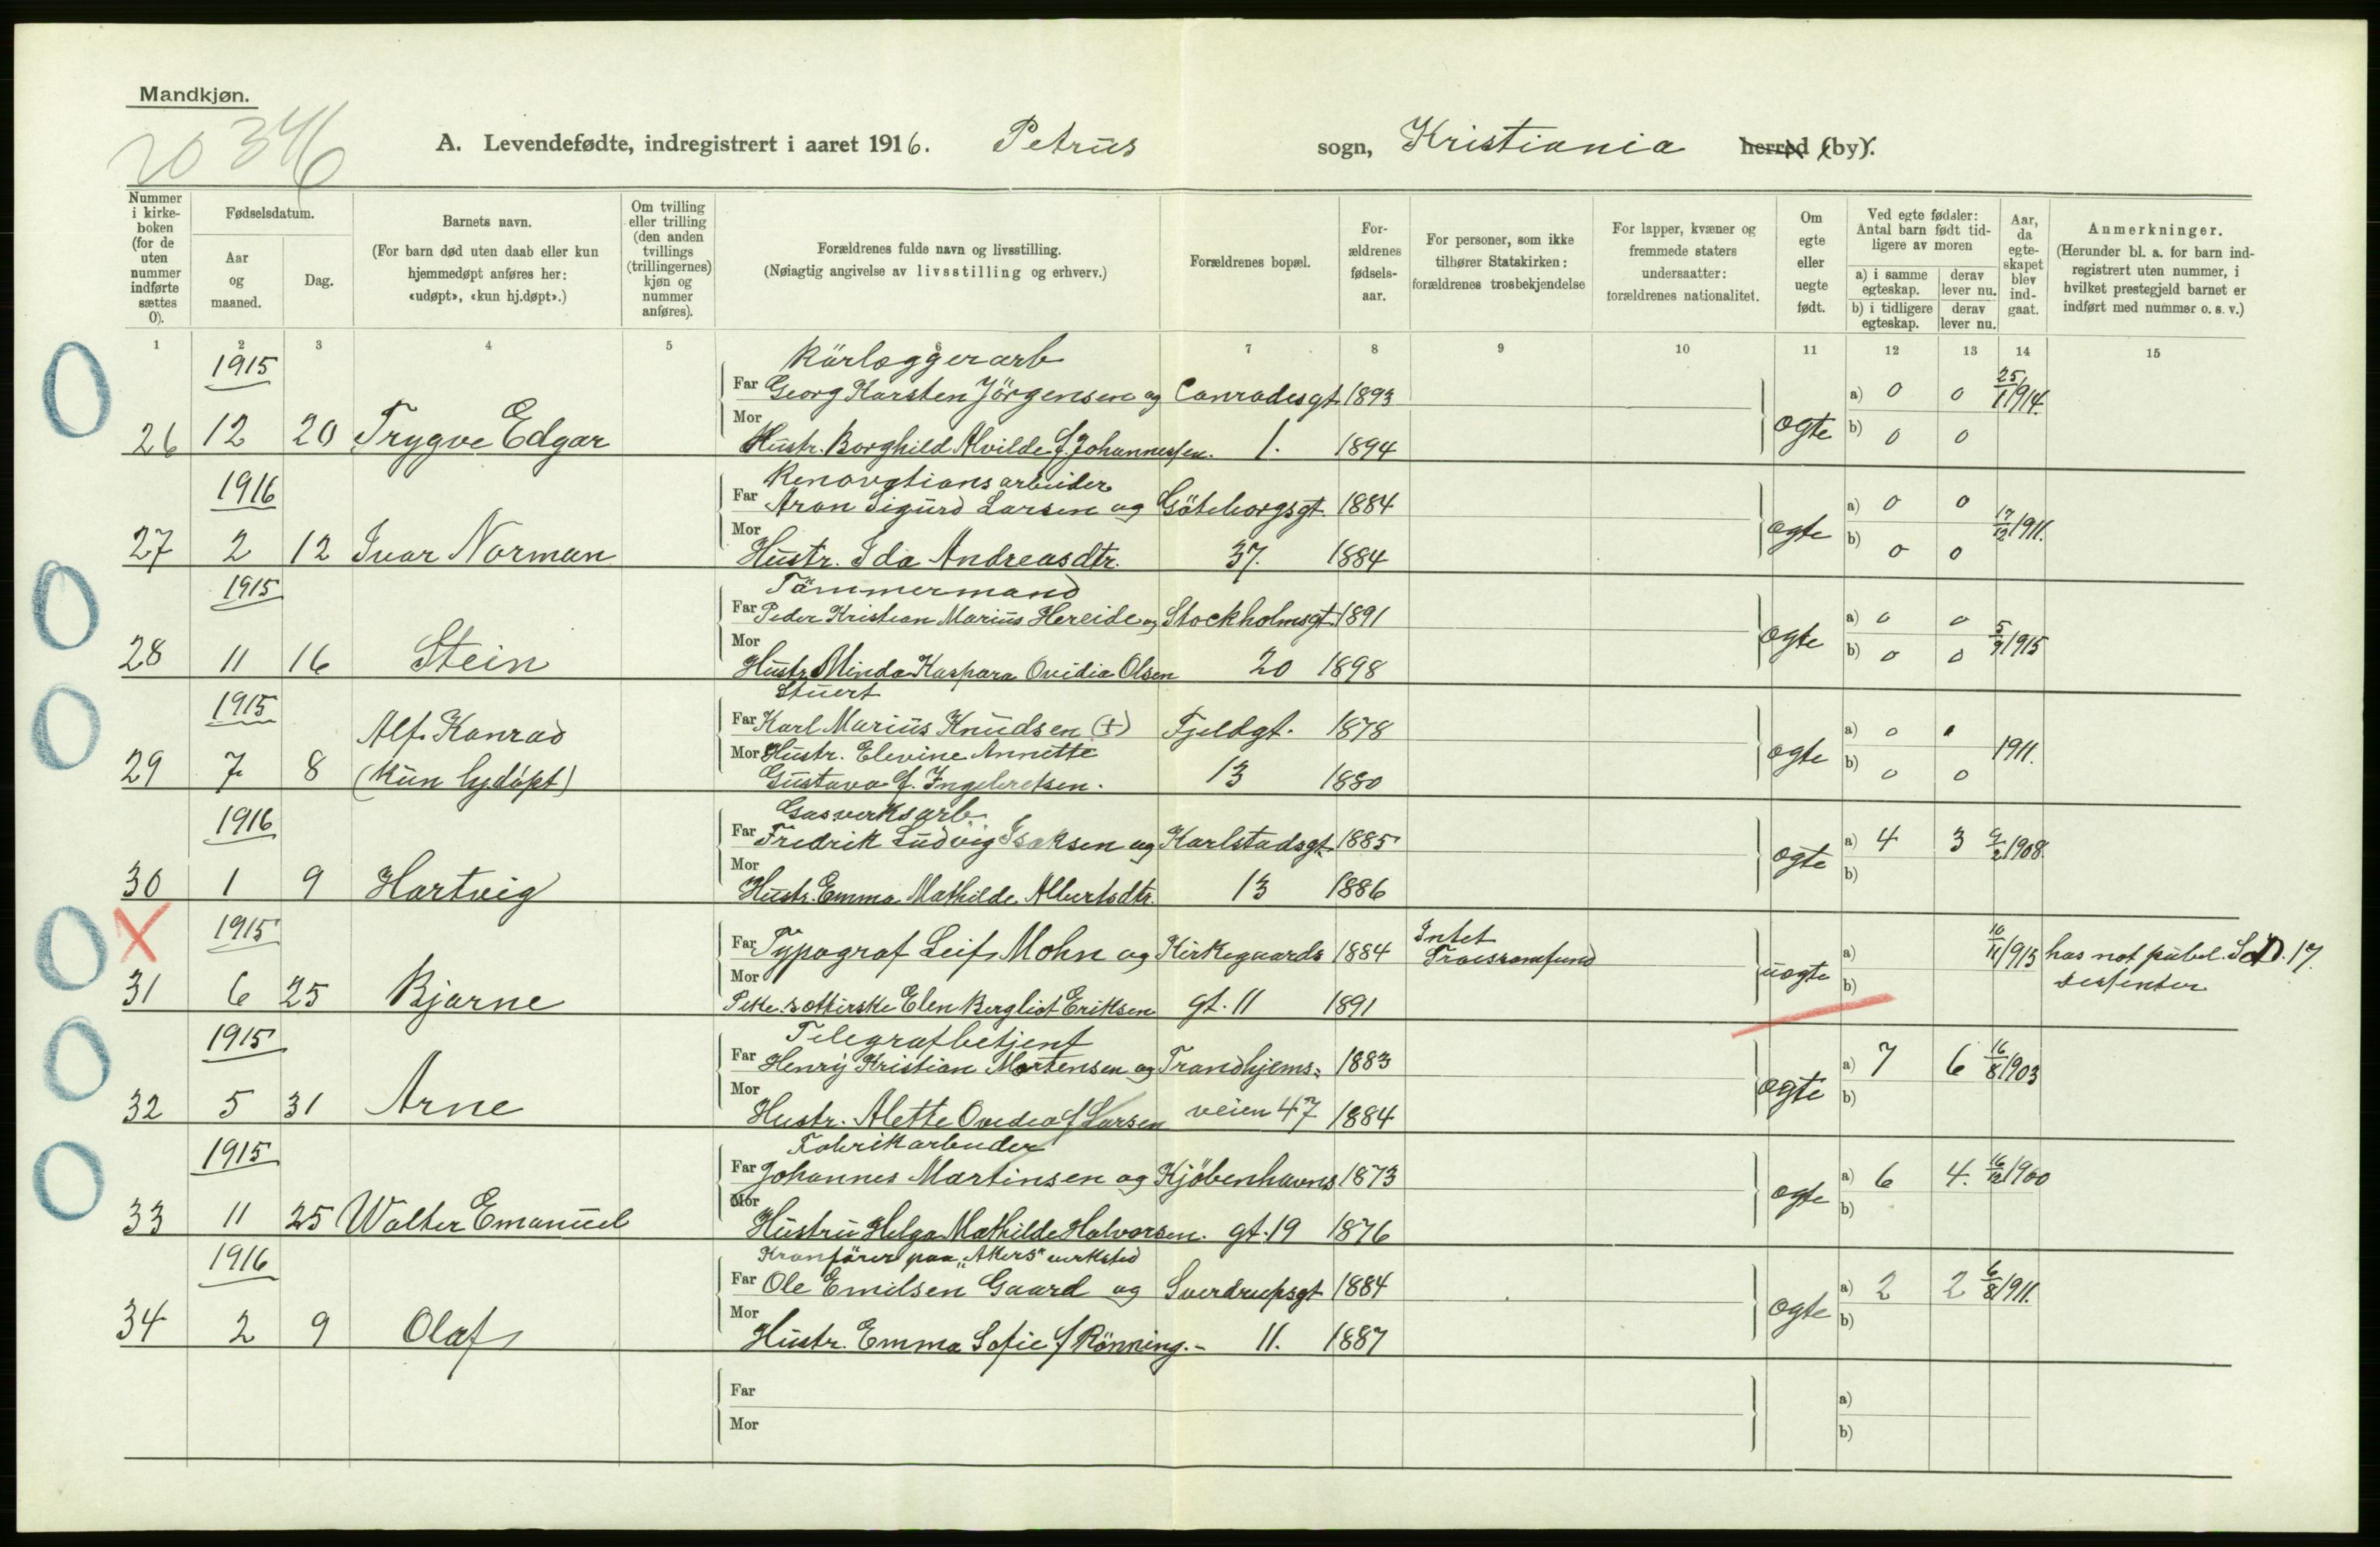 Mandkjøn.
20 346
A. Levendefødte, indregistrert i aaret 1916. Petrus sogn, Kristiania herred (by).
Nummer i kirkeboken (for de uten nummer indførte sættes 0).
Fødselsdatum.
Aar og maaned.
Dag.
Barnets navn.
(For barn død uten daab eller kun hjemmedøpt anføres her: «udøpt», «kun hj.døpt».)
Om tvilling eller trilling (den anden tvillings (trillingernes) kjøn og nummer anføres).
Forældrenes fulde navn og livsstilling.
(Nøiagtig angivelse av livsstilling og erhverv.)
Forældrenes bopæl.
Forældrenes fødselsaar.
For personer, som ikke tilhører Statskirken: forældrenes trosbekjendelse
For lapper, kvæner og fremmede staters undersaatter: forældrenes nationalitet.
Om egte eller uegte født.
Ved egte fødsler: Antal barn født tidligere av moren
a) i samme egteskap.
derav lever nu.
b) i tidligere egteskap.
derav lever nu.
Aar, da egteskapet blev indgaat.
Anmerkninger.
(Herunder bl. a. for barn indregistrert uten nummer, i hvilket prestegjeld barnet er indført med nummer o. s. v.)
1 2 3 4 5 6 7 8 9 10 11 12 13 14 15
1915 Rörlæggerarb
Far Georg Karsten Jörgensen og Conradisgt 1893 a) 0 0 25/1 1914.
26 12 20 Trygve Edgar Mor Hustr. Borghild Alvilde f. Johannessen. 1. 1894 egte b) 0 0
1916 Renovationsarbeider
Far Aron Sigurd Larsen og Göteborgsgt. 1884 a) 0 0 17/12 1911.
27 2 12 Ivar Norman Mor Hustr. Ida Andreasdtr. 37. 1884 egte b) 0 0
1915 Tömmermand
Far Peder Kristian Marius Hereide og Stockholmsgt 1891 a) 0 0 5/9 1915
28 11 16 Stein Mor Hustr. Minda Kaspara Ovidia Olsen 20 1898 egte b) 0 0
1915 Stuert
Far Karl Marius Knudsen (+) Fjeldgt. 1878 a) 0
Alf. Konrad Mor Hustr. Elevine Annette egte 1911.
29 7 8 (Kun hj.döpt) Gustava f. Ingebretsen. 13 1880 b) 0 0
1916 Gasverksarb.
Far Fredrik Ludvig Isaksen og Karlstadsgt. 1885 a) 4 3 9/2 1908.
30 1 9 Hartvig Mor Hustr. Emma Mathilde Albertsdtr. 13 1886 egte b)
X 1915 Intet
Far Typograf Leif Mohn og Kirkegaards 1884 Troessamfund a) 10/11 1915 has not publ. Sc. D. 17.
31 6 25 Bjarne Mor Elen Bergliot Eriksen gt. 11 1891 uegte b)
1915 Telegrafbetjent
Far Henry Kristian Mortensen og Trondhjems= 1883 a) 7 6 16/8 1903
32 5 31 Arne Mor Hustr. Alette Ovedia f Larsen veien 47 1884 egte b)
1915 Fabrikarbeider
Far Johannes Martinsen og Kjöbenhavns 1873 a) 6 4. 16/12 1900
33 11 25 Walter Emanuel Mor Hustru Helga Mathilde Halvorsen. gt. 19 1876 egte b)
1916 Kranförer paa "Akers" verksted
Far Ole Emilsen Gaard og Sverdrupsgt 1884 a) 2 2 6/8 1911.
34 2 9 Olaf Mor Hustr. Emma Sofie f Rönning.- 11. 1887 egte b)
Far a)
Mor b)